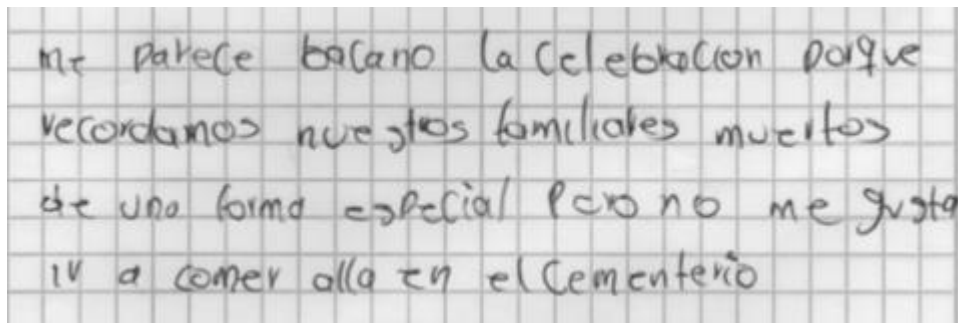 me parece bacano la celebracion porque
recordamos nuestros familiares muertos
de una forma especial pero no me gusta
ir a comer alla en el cementerio